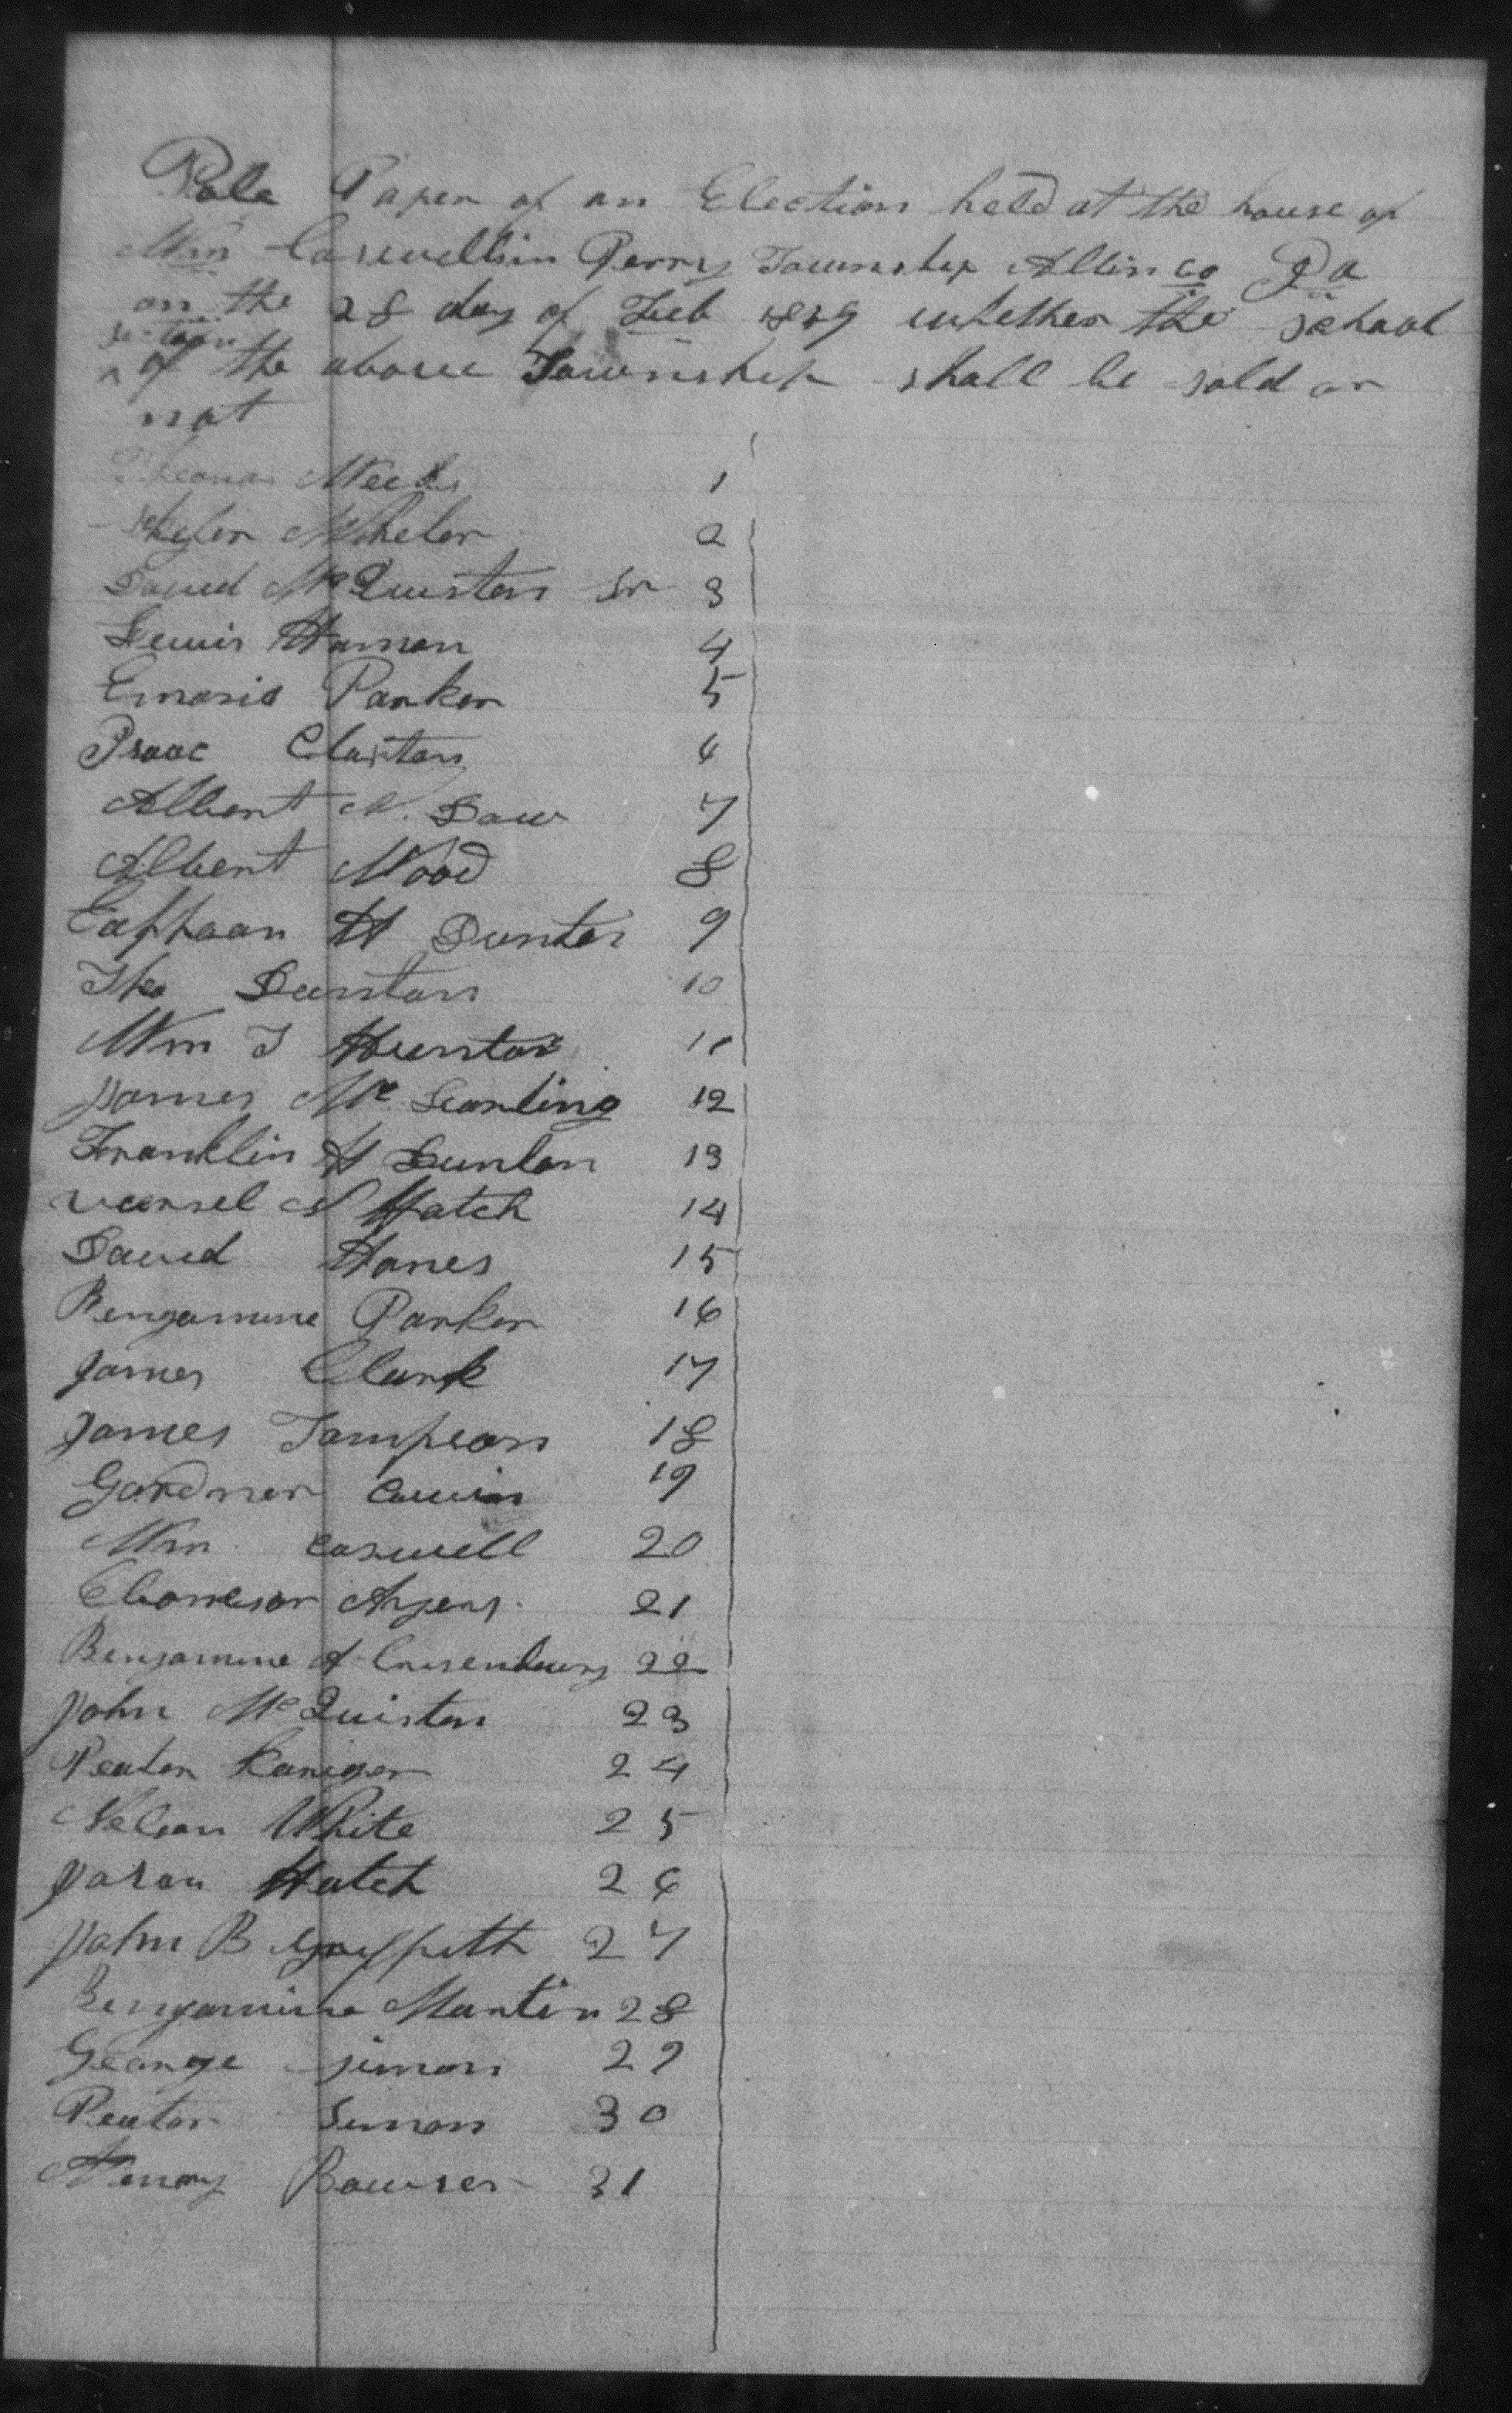 Pole Paper of an Election held at the house of
Wm Casewell in Perry Township Allin co Ia
on the 28 day of Feb 1829 whether the school
section
^ of the above Township shall be sold or
not
Meeks 1
Wheler 2
David McQuiston Sr 3
Lewis Hamon 4
Emaris Parker 5
Isaac Claxton 6
Albert N. Law 7
Albert Wood 8
H Dunten 9
Tho Dunton 10
Wm T Hunter 11
James Mc Scarling 12
Franklin H Dunlon 13
vearsel N Hatch 14
David Hanes 15
Bengamine Parker 16
James Clark 17
James Tompson 18
Gardner 19
Wm Caswell 20
Ebonesor Ayers 21
Bengamine A 22
John McQuiston 23
Peater 24
Nelson White 25
Jason Hatch 26
John B Griffith 27
Bengamine Martin 28
George Simon 29
Peator Simon 30
Henry Bowser 31